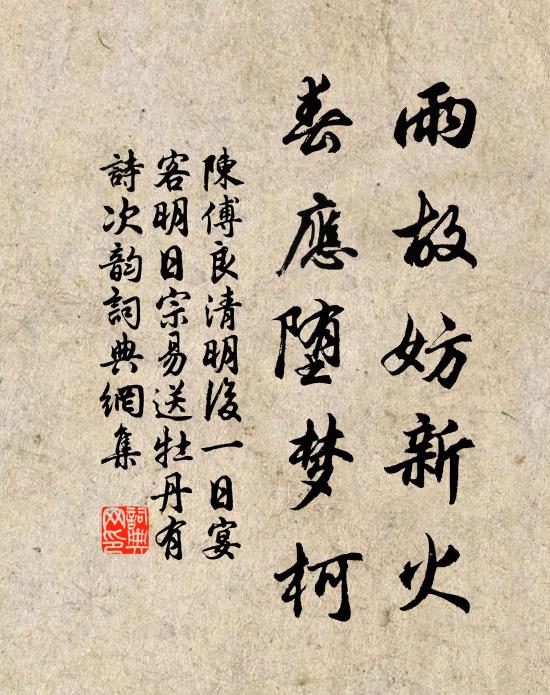 雨故妨新火
春應堕梦柯
陳傅良清明後一日宴
客明日宗易送牡丹有
詩次韵詞典網集
詞典
网印